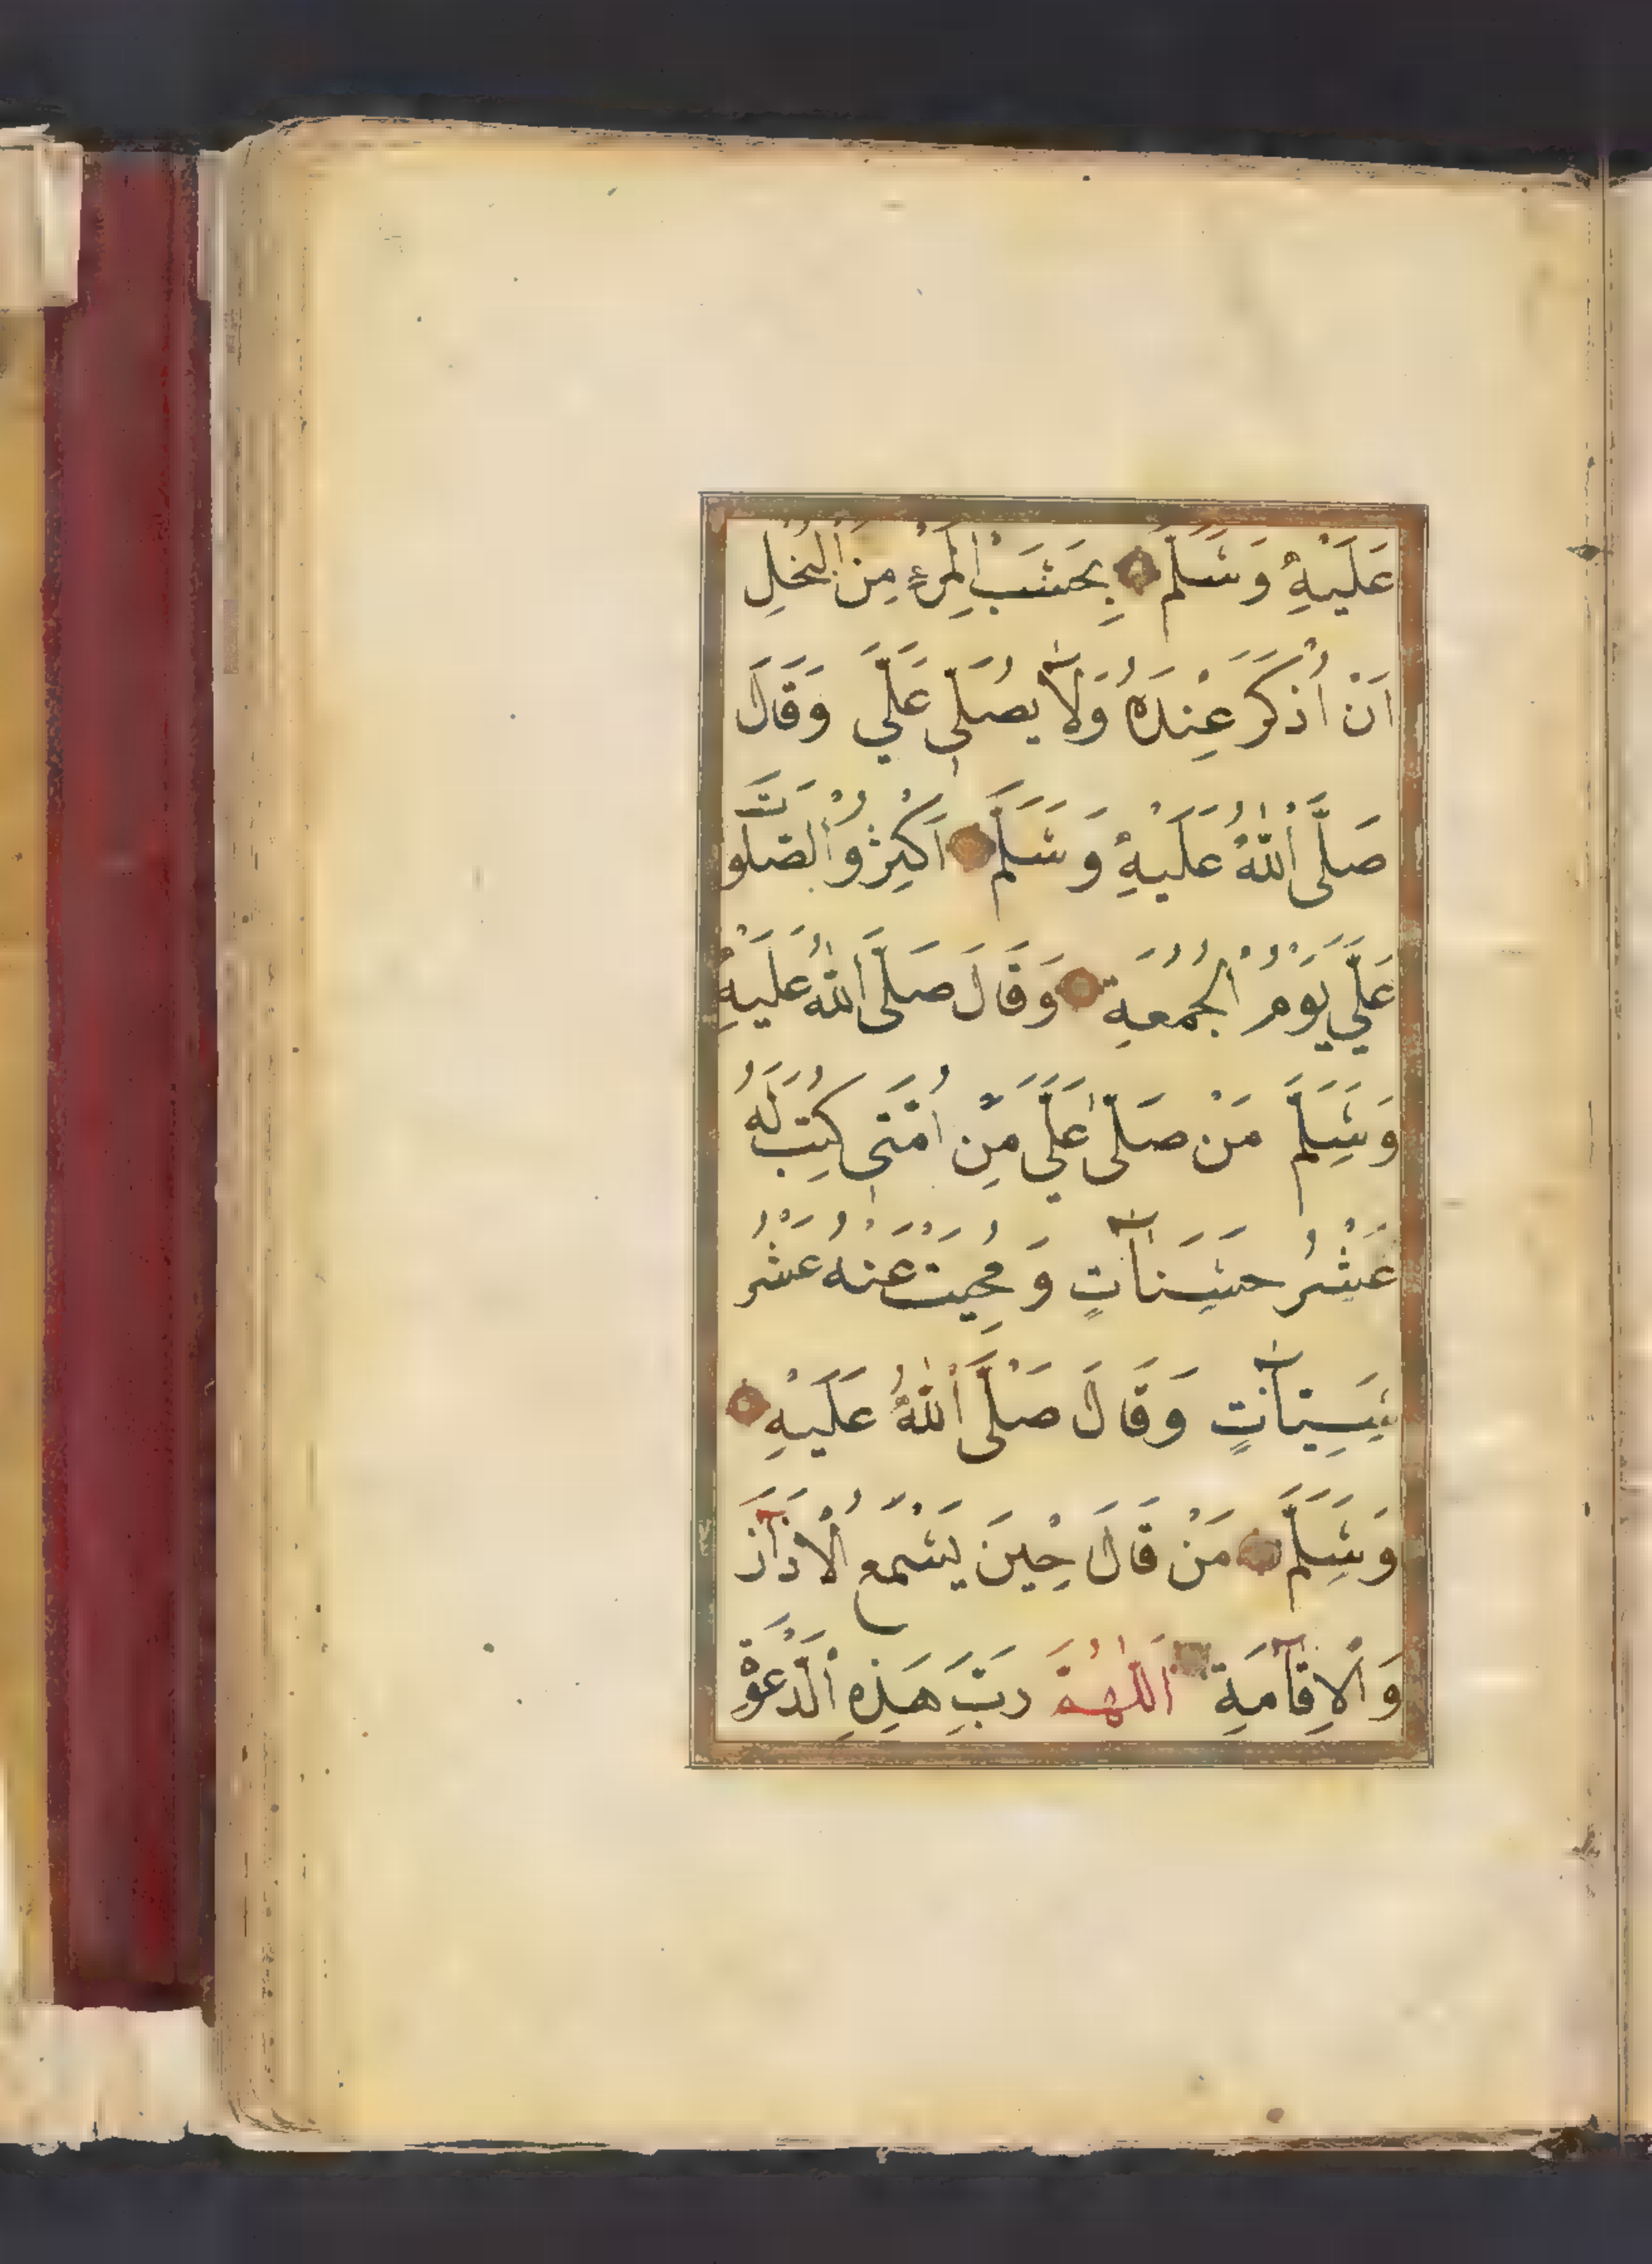 عَلَيْهِ وَسَلَّمَ بِحَسْبِ الْمَرْءِ مِنَ الْبُخْلِ
اَنْ اُذْكَرَ عِنْدَهُ وَلَا يُصَلِّي عَلَيَّ وَقَالَ
صَلَّى اللّٰهُ عَلَيْهِ وَسَلَّمَ اَكْثِرُوا الصَّلٰوةَ
عَلَيَّ يَوْمَ الْجُمُعَةِ وَقَالَ صَلَّى اللّٰهُ عَلَيْهِ
وَسَلَّمَ مَنْ صَلَّى عَلَيَّ مِنْ اُمَّتِي كُتِبَ لَهُ
عَشْرُ حَسَنَاتٍ وَمُحِيَتْ عَنْهُ عَشْرُ
سَيِّئَاتٍ وَقَالَ صَلَّى اللّٰهُ عَلَيْهِ
وَسَلَّمَ مَنْ قَالَ حِينَ يَسْمَعُ الْاَذَانَ
وَالْاِقَامَةِ اَللّٰهُمَّ رَبَّ هَذِهِ الدَّعْوَةِ